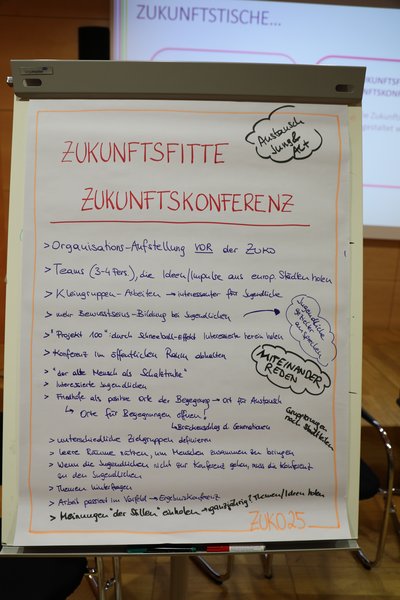 ZUKUNFTSTISCHE...
Austausch
Jung & Alt
ZUKUNFTSFITTE
ZUKUNFTSKONFERENZ
> Organisations-Aufstellung VOR der ZUKO
> Teams (3-4 Pers), die Ideen/Impulse aus europ. Städten holen
> Kleingruppen-Arbeiten → interessanter für Jugendliche
> mehr Bewusstseins-Bildung bei Jugendlichen
Jugendliche
> "Projekt 100": durch Schneeball-Effekt Interessierte herein holen
> Konferenz im öffentlichen Raum abhalten
MITEINANDER
REDEN
> "der alte Mensch als Schatztruhe"
> Interessierte Jugendlichen
> Friedhöfe als positive Orte der Begegnung → Ort für Austausch
↳ Orte für Begegnungen öffnen!
↳ Brückenschlag d. Generationen
Gruppierungen
nach Stadtteilen
> unterschiedliche Zielgruppen definieren
> leere Räume nützen, um Menschen zusammen zu bringen
> Wenn die Jugendlichen nicht zur Konferenz gehen, muss die Konferenz
zu den Jugendlichen
> Themen hinterfragen
> Arbeit passiert im Vorfeld → Ergebniskonferenz
> Meinungen "der Stillen" einholen → ganzjährig? Themen/Ideen holen
ZUKO25